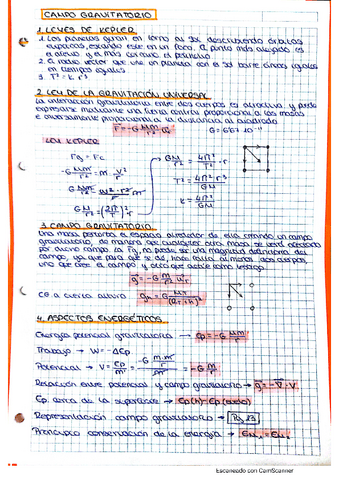 CAMPO GRAVITATORIO
1. LEYES DE KEPLER
1. Los planetas giran en torno al Sol describiendo órbitas
elípticas, estando este en un foco. El punto más alejado es
el afelio y el más cercano el perihelio
2. El radio vector que une un planeta con el Sol barre áreas iguales
en tiempos iguales
3. T² = k r³
2. LEY DE LA GRAVITACIÓN UNIVERSAL
La interacción gravitatoria entre dos cuerpos es atractiva y puede
expresarse mediante una fuerza central proporcional a las masas
e inversamente proporcional a la distancia al cuadrado
F = -G Mm/r² G = 6'67·10⁻¹¹
LEY KEPLER
Fg = Fc
G Mm/r² = m · v²/r
G Mm/r² = w²·r²/r m
G M/r² = (2π/T)² · r
GM/r² = 4π²/T² · r
T² = 4π²·r³/GM
k = 4π²/GM
3. CAMPO GRAVITATORIO
Una masa perturba el espacio alrededor de ella creando un campo
gravitatorio, de manera que cualquier otra masa se verá afectada
por dicho campo. La Fg no puede ser una magnitud definitoria del
campo, ya que para que se dé, hacen falta al menos dos cuerpos,
uno que cree el campo y otro que actúe como testigo.
g = -G M/r² ur
CG a cierta altura gh = G MT/(RT+h)²
4. ASPECTOS ENERGÉTICOS
Energía potencial gravitatoria → Ep = -G Mm/r
Trabajo → W = -ΔEp
Potencial → V = Ep/m = = -G M/r
Relación entre potencial y campo gravitatorio → g = -∇·V
Ep. cerca de la superficie → Ep(h) - Ep(suelo)
Representación campo gravitatorio →
Principio conservación de la energía → Em₁ = Em₂
Escaneado con CamScanner